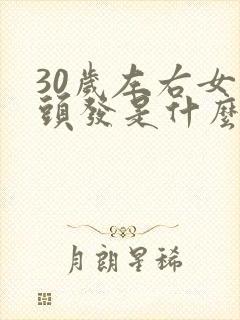 30歲左右女
頭發是什麼
月朗星稀